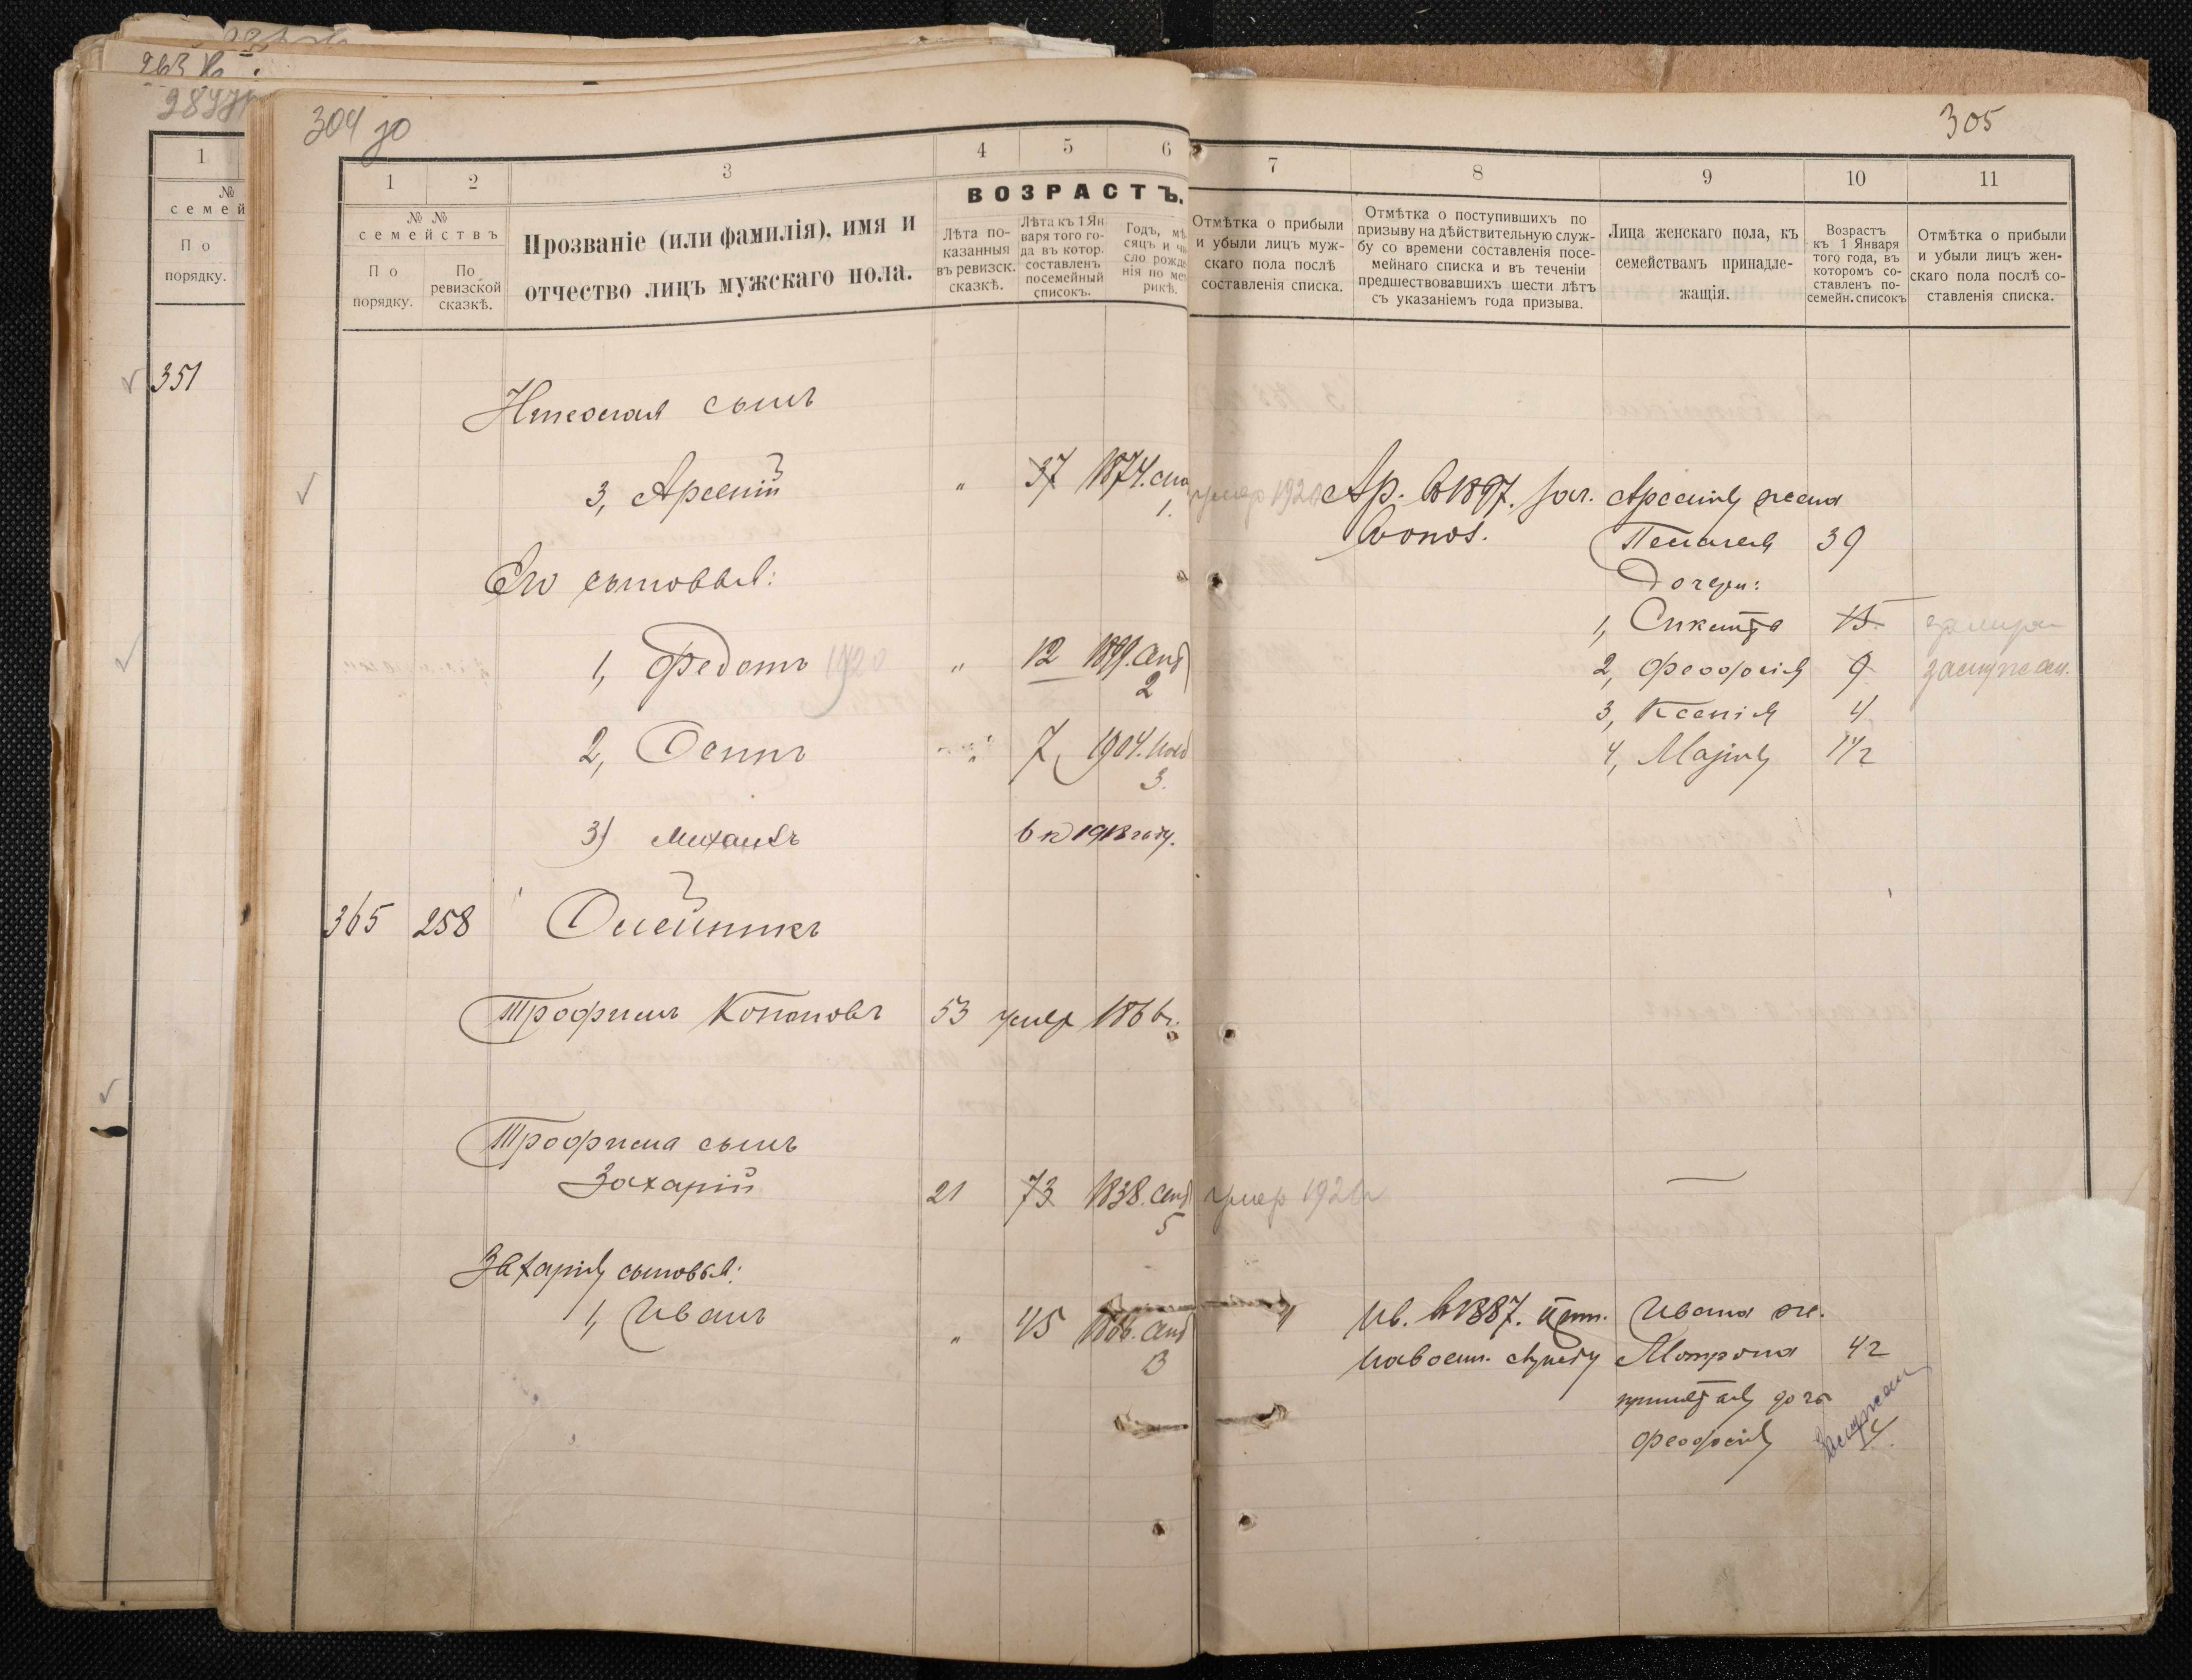 304 зо
305
351
1
№
семей
По
порядку.
1 2 3 4 5 6 7 8 9 10 11
№ №
семействъ
По порядку.
По ревизской сказкѣ.
Прозваніе (или фамилія), имя и
отчество лицъ мужскаго пола.
ВОЗРАСТЪ.
Лѣта по-
казанныя
въ ревизск.
сказкѣ.
Лѣта къ 1 Ян-
варя того го-
да въ котор.
составленъ
посемейный
списокъ.
Годъ, мѣ
сяцъ и чи
сло рожде
нія по мет
рикѣ.
Отмѣтка о прибыли
и убыли лицъ муж-
скаго пола послѣ
составленія списка.
Отмѣтка о поступившихъ по
призыву на дѣйствительную служ-
бу со времени составленія посе-
мейнаго списка и въ теченіи
предшествовавшихъ шести лѣтъ
съ указаніемъ года призыва.
Лица женскаго пола, къ
семействамъ принадле-
жащія.
Возрастъ
къ 1 Января
того года, въ
которомъ со-
ставленъ по-
семейн. списокъ
Отмѣтка о прибыли
и убыли лицъ жен-
скаго пола послѣ со-
ставленія списка.
сынъ
3, Арсеній " 37 1874. 1. умер 1920 Ар. в 1897. зач. Арсенія жена
Пелагея 39
Его сыновья:
Дочери:
1, 15
1, Федотъ 1920 " 12 1899. 2
2, Феодосія 9 замужем.
3, Ксенія 4
2, Осипъ " 7 1904. 3.
4, Марія 1 1/2
3) Михаилъ 6 к 1918 году.
365 258 Олейникъ
Трофимъ Кононовъ 53 умер 1866г.
Трофима сынъ
Захарій 21 73 1838. 5 умер 192
Захарія сыновья:
1, Иванъ " 45 1866. 13 Ив. в 1887. Ивана же.
службу Мотрона 42
дочь
Феодосія замужем